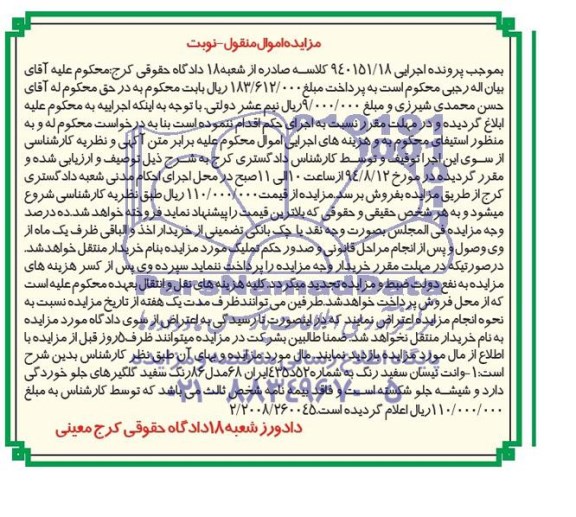 مزایده اموال منقول-نوبت
بموجب پرونده اجرایی ۹۴۰۱۵۱/۱۸ کلاسه صادره از شعبه۱۸ دادگاه حقوقی کرج:محکوم علیه آقای
بیان اله رجبی محکوم است به پرداخت مبلغ ۱۸۳/۶۱۲/۰۰۰ ریال بابت محکوم به در حق محکوم له آقای
حسن محمدی شیرزی و مبلغ ۹/۰۰۰/۰۰۰ریال نیم عشر دولتی. با توجه به اینکه اجراییه به محکوم علیه
ابلاغ گردیده و در مهلت مقرر نسبت به اجرای حکم اقدام ننموده است بنا به درخواست محکوم له و به
منظور استیفای محکوم به و هزینه های اجرایی اموال محکوم علیه برابر متن آتی و نظریه کارشناسی
از سوی این اجرا توقیف و توسط کارشناس دادگستری کرج به شرح ذیل توصیف و ارزیابی شده و
مقرر گردیده در مورخ ۹۴/۸/۱۲ ازساعت ۱۰الی ۱۱صبح در محل اجرای احکام مدنی شعبه دادگستری
کرج از طریق مزایده بفروش برسد.مزایده از قیمت۱۱۰/۰۰۰/۰۰۰ریال طبق نظریه کارشناسی شروع
میشود و به هر شخص حقیقی و حقوقی که بالاترین قیمت را پیشنهاد نماید فروخته خواهد شد.ده درصد
وجه مزایده فی المجلس بصورت وجه نقد یا چک بانکی تضمینی از خریدار اخذ و الباقی ظرف یک ماه از
وی وصول و پس از انجام مراحل قانونی و صدور حکم تملیک مورد مزایده بنام خریدار منتقل خواهدشد.
درصورتیکه در مهلت مقرر خریدار وجه مزایده را پرداخت ننماید سپرده وی پس از کسر هزینه های
مزایده به نفع دولت ضبط و مزایده تجدید میگردد.کلیه هزینه های نقل و انتقال بعهده محکوم علیه است
که از محل فروش پرداخت خواهدشد.طرفین می توانندظرف مدت یک هفته از تاریخ مزایده نسبت به
نحوه انجام مزایده اعتراض نمایند که در اینصورت تا رسیدگی به اعتراض از سوی دادگاه مورد مزایده
به نام خریدار منتقل نخواهد شد.ضمنا طالبین بشرکت در مزایده میتوانند ظرف۵روز قبل از مزایده با
اطلاع از مال مورد مزایده بازدید نمایند. مال مورد مزایده و مبنای آن طبق نظر کارشناس بدین شرح
است:۱-وانت نیسان سفید رنگ به شماره۴۳۵د۵۲ایران ۶۸مدل ۸۶رنگ سفید گلگیرهای جلو خوردگی
دارد و شیشه جلو شکسته است و فاقد بیمه نامه شخص ثالث می باشد که توسط کارشناس به مبلغ
۱۱۰/۰۰۰/۰۰۰ریال اعلام گردیده است.۲/۲۰۰۸/۲۶۰۰۴۵
دادورز شعبه۱۸دادگاه حقوقی کرج معینی
ParsNamadData
۰۲۱-۸۸۳۴۹۶۷۰-۵